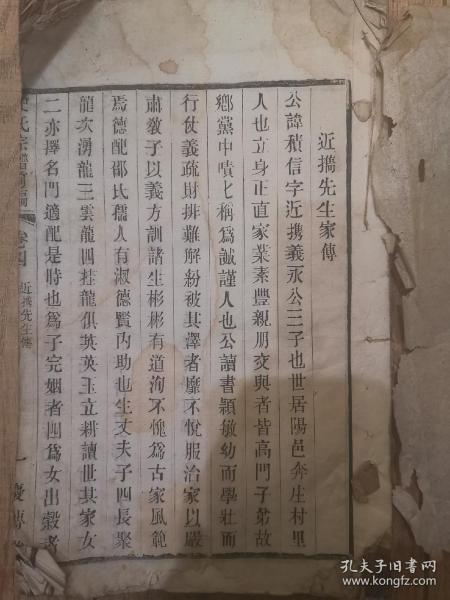 近擕先生家傳
公諱積信字近擕義永公三子也世居陽邑奔庄村里
人也立身正直家業素豐親朋交與者皆高門子弟故
鄉黨中嘖匕稱為誠謹人也公讀書穎敏幼而學壯而
行仗義疏財排難解紛被其澤者靡不悅服治家以嚴
肅教子以義方訓諸生彬彬有道洵不愧為古家風範
焉德配邵氏孺人有淑德賢內助也生丈夫子四長聚
龍次湧龍三雲龍四桂龍俱英英玉立耕讀世其家女
二亦擇名門適配是時也為子完姻者四為女出嫁者
氏宗譜
卷四
近擕先生傳
一
慶傳堂
孔夫子旧书网
www.kongfz.com